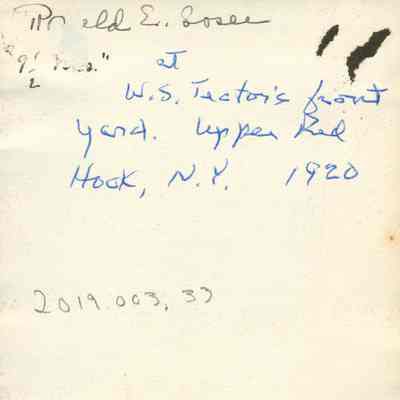 Ronald E. Bosee
"9½ mos."
at
W.S. Teator's front
yard. Upper Red
Hook, N.Y. 1920
2019.003.33